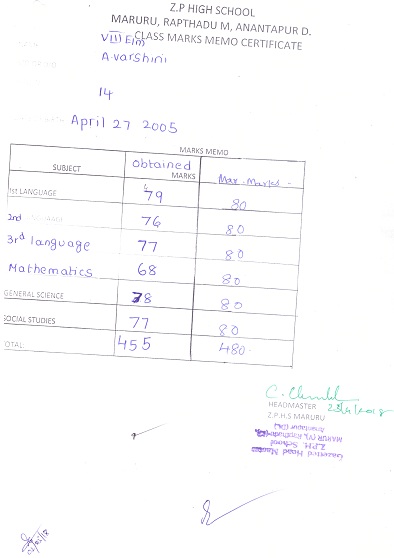 Z.P HIGH SCHOOL
MARURU, RAPTHADU M, ANANTAPUR D.
CLASS MARKS MEMO CERTIFICATE
VIII E/m
A.varshini
14
April 27 2005
MARKS MEMO
SUBJECT obtained MARKS Max. Marks
1st LANGUAGE 79 80
2nd 76 80
3rd language 77 80
Mathematics 68 80
GENERAL SCIENCE 78 80
SOCIAL STUDIES 77 80
TOTAL: 455 480
HEADMASTER 23/4/2018
Z.P.H.S MARURU
Z.P.H. School